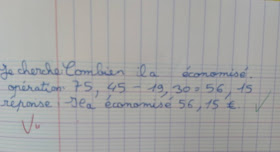 Je cherche Combien il a économisé.
opération: 75, 45 - 19, 30 = 56, 15
réponse: Il a économisé 56, 15 €.